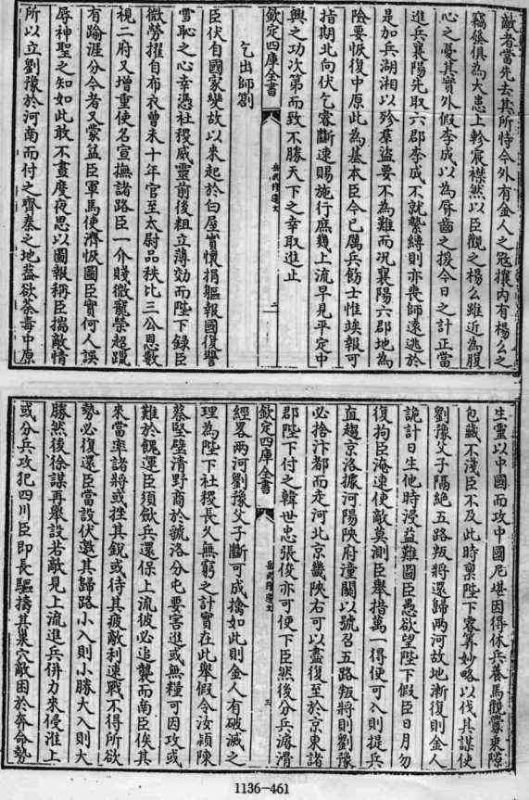 敵者當先去其所恃今外有金人之冦攘內有楊么之
竊發俱為大患上軫宸襟然以臣觀之楊么雖近為腹
心之憂其實外假李成以為脣齒之援今日之計正當
進兵襄陽先取六郡李成不就縶縛則亦喪師遠逃於
是加兵湖湘以殄羣盜要不為難而況襄陽六郡地為
險要恢復中原此為基本臣今已厲兵飭士惟竢報可
指期北向伏乞睿斷速賜施行庶幾上流早見平定中
興之功次第而致不勝天下之幸取進止
欽定四庫全書
岳武穆遺文
二
乞出師劄
臣伏自國家變故以來起於白屋實懷捐軀報國復讐
雪恥之心幸憑社稷威靈前後粗立薄効而陛下録臣
微勞擢自布衣曾未十年官至太尉品秩比三公恩數
視二府又增重使名宣撫諸路臣一介賤微寵榮超躐
有踰涯分今者又蒙益臣軍馬使濟恢圖臣實何人誤
辱神聖之知如此敢不晝度夜思以圖報稱臣揣敵情
所以立劉豫於河南而付之齊秦之地葢欲荼毒中原
生靈以中國而攻中國尼堪因得休兵養馬觀釁乘隙
包藏不淺臣不及此時稟陛下睿算妙略以伐其謀使
劉豫父子隔絶五路叛將還歸兩河故地漸復則金人
詭計日生他時浸益難圖臣愚欲望陛下假臣日月勿
復拘臣淹速使敵莫測臣舉措萬一得便可入則提兵
直趨京洛據河陽陝府潼關以號召五路叛將則劉豫
必捨汴都而走河北京畿陝右可以盡復至於京東諸
郡陛下付之韓世忠張俊亦可便下臣然後分兵濬滑
欽定四庫全書
岳武穆遺文
三
經略兩河劉豫父子斷可成擒如此則金人有破滅之
理為陛下社稷長久無窮之計實在此舉假令汝潁陳
蔡堅壁清野商於虢洛分屯要害進或無糧可因攻或
難於餽運臣須歛兵還保上流彼必追襲而南臣俟其
來當率諸將或挫其銳或待其疲敵利速戰不得所欲
勢必復還臣當設伏邀其歸路小入則小勝大入則大
勝然後徐謀再舉設若敵見上流進兵併力來侵淮上
或分兵攻犯四川臣即長驅擣其巢穴敵困於奔命勢
1136-461